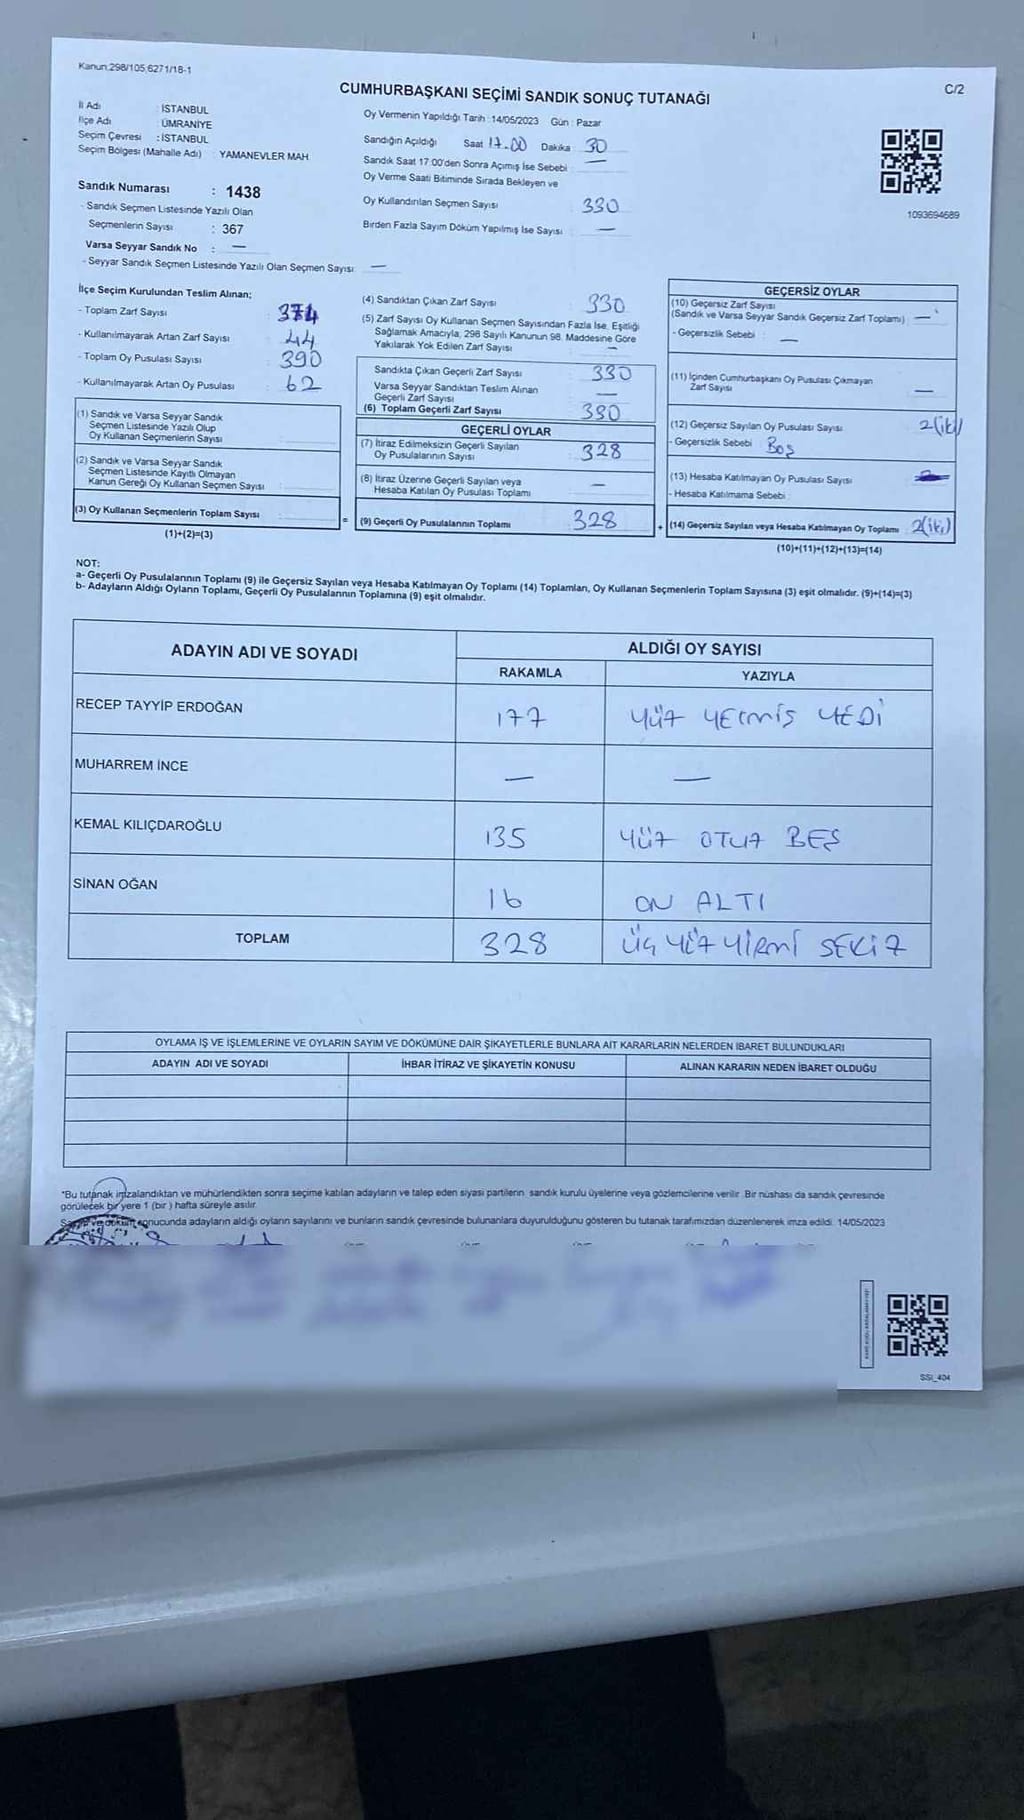 Kanun.298/105,6271/18-1
C/2
CUMHURBAŞKANI SEÇİMİ SANDIK SONUÇ TUTANAĞI
İl Adı : İSTANBUL
İlçe Adı : ÜMRANİYE
Seçim Çevresi : İSTANBUL
Seçim Bölgesi (Mahalle Adı) : YAMANEVLER MAH
Sandık Numarası : 1438
- Sandık Seçmen Listesinde Yazılı Olan
Seçmenlerin Sayısı : 367
Varsa Seyyar Sandık No : —
- Seyyar Sandık Seçmen Listesinde Yazılı Olan Seçmen Sayısı: —
Oy Vermenin Yapıldığı Tarih : 14/05/2023 Gün : Pazar
Sandığın Açıldığı Saat 17.00 Dakika 30
Sandık Saat 17:00'den Sonra Açımış İse Sebebi : —
Oy Verme Saati Bitiminde Sırada Bekleyen ve
Oy Kullandırılan Seçmen Sayısı 330
Birden Fazla Sayım Döküm Yapılmış İse Sayısı : —
1093694689
İlçe Seçim Kurulundan Teslim Alınan;
- Toplam Zarf Sayısı : 374
- Kullanılmayarak Artan Zarf Sayısı : 44
- Toplam Oy Pusulası Sayısı : 390
- Kullanılmayarak Artan Oy Pusulası : 62
(1) Sandık ve Varsa Seyyar Sandık
Seçmen Listesinde Yazılı Olup
Oy Kullanan Seçmenlerin Sayısı :
(2) Sandık ve Varsa Seyyar Sandık
Seçmen Listesinde Kayıtlı Olmayan
Kanun Gereği Oy Kullanan Seçmen Sayısı :
(3) Oy Kullanan Seçmenlerin Toplam Sayısı :
(1)+(2)=(3)
(4) Sandıktan Çıkan Zarf Sayısı : 330
(5) Zarf Sayısı Oy Kullanan Seçmen Sayısından Fazla İse, Eşitliği
Sağlamak Amacıyla, 298 Sayılı Kanunun 98. Maddesine Göre
Yakılarak Yok Edilen Zarf Sayısı : —
Sandıkta Çıkan Geçerli Zarf Sayısı : 330
Varsa Seyyar Sandıktan Teslim Alınan
Geçerli Zarf Sayısı : —
(6) Toplam Geçerli Zarf Sayısı : 330
GEÇERLİ OYLAR
(7) İtiraz Edilmeksizin Geçerli Sayılan
Oy Pusulalarının Sayısı : 328
(8) İtiraz Üzerine Geçerli Sayılan veya
Hesaba Katılan Oy Pusulası Toplamı : —
= (9) Geçerli Oy Pusulalarının Toplamı : 328 +
GEÇERSİZ OYLAR
(10) Geçersiz Zarf Sayısı
(Sandık ve Varsa Seyyar Sandık Geçersiz Zarf Toplamı) : —
- Geçersizlik Sebebi : —
(11) İçinden Cumhurbaşkanı Oy Pusulası Çıkmayan
Zarf Sayısı : —
(12) Geçersiz Sayılan Oy Pusulası Sayısı : 2(iki)
- Geçersizlik Sebebi : Boş
(13) Hesaba Katılmayan Oy Pusulası Sayısı :
- Hesaba Katılmama Sebebi :
(14) Geçersiz Sayılan veya Hesaba Katılmayan Oy Toplamı : 2(iki)
(10)+(11)+(12)+(13)=(14)
NOT:
a- Geçerli Oy Pusulalarının Toplamı (9) ile Geçersiz Sayılan veya Hesaba Katılmayan Oy Toplamı (14) Toplamları, Oy Kullanan Seçmenlerin Toplam Sayısına (3) eşit olmalıdır. (9)+(14)=(3)
b- Adayların Aldığı Oyların Toplamı, Geçerli Oy Pusulalarının Toplamına (9) eşit olmalıdır.
ADAYIN ADI VE SOYADI ALDIĞI OY SAYISI
RAKAMLA YAZIYLA
RECEP TAYYİP ERDOĞAN 177 YÜZ YETMİŞ YEDİ
MUHARREM İNCE — —
KEMAL KILIÇDAROĞLU 135 YÜZ OTUZ BEŞ
SİNAN OĞAN 16 ON ALTI
TOPLAM 328 ÜÇ YÜZ YİRMİ SEKİZ
OYLAMA İŞ VE İŞLEMLERİNE VE OYLARIN SAYIM VE DÖKÜMÜNE DAİR ŞİKAYETLERLE BUNLARA AİT KARARLARIN NELERDEN İBARET BULUNDUKLARI
ADAYIN ADI VE SOYADI İHBAR İTİRAZ VE ŞİKAYETİN KONUSU ALINAN KARARIN NEDEN İBARET OLDUĞU
*Bu tutanak imzalandıktan ve mühürlendikten sonra seçime katılan adayların ve talep eden siyasi partilerin sandık kurulu üyelerine veya gözlemcilerine verilir. Bir nüshası da sandık çevresinde
görülecek bir yere 1 (bir) hafta süreyle asılır.
Sayım ve döküm sonucunda adayların aldığı oyların sayılarını ve bunların sandık çevresinde bulunanlara duyurulduğunu gösteren bu tutanak tarafımızdan düzenlenerek imza edildi. 14/05/2023
SSI_404